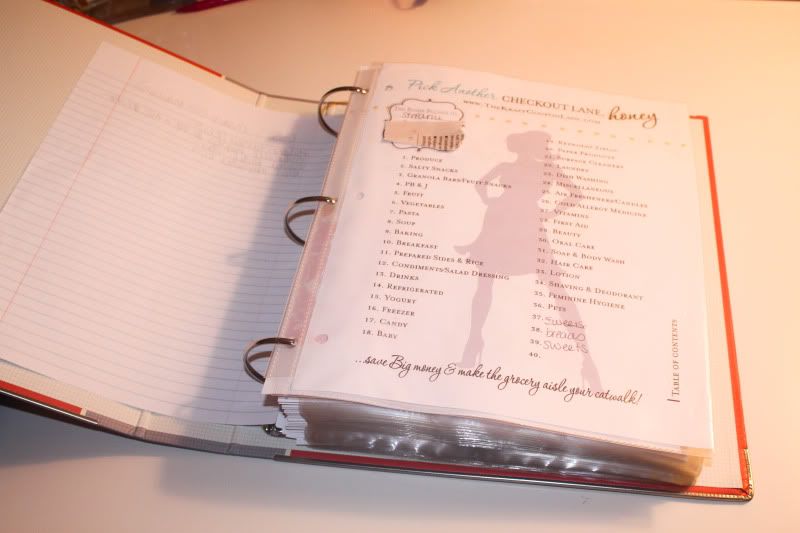 Pick Another CHECKOUT LANE, honey
www.TheKrazyCouponLady.com
This Binder Belongs to:
1. Produce
2. Salty Snacks
3. Granola Bars/Fruit Snacks
4. PB & J
5. Fruit
6. Vegetables
7. Pasta
8. Soup
9. Baking
10. Breakfast
11. Prepared Sides & Rice
12. Condiments/Salad Dressing
13. Drinks
14. Refrigerated
15. Yogurt
16. Freezer
17. Candy
18. Baby
20. Paper Products
21. Surface Cleaners
22. Laundry
23. Dish Washing
24. Miscellaneous
25. Air Fresheners/Candles
26. Cold/Allergy Medicine
27. Vitamins
28. First Aid
29. Beauty
30. Oral Care
31. Soap & Body Wash
32. Hair Care
33. Lotion
34. Shaving & Deodorant
35. Feminine Hygiene
36. Pets
37. Sweets
38. bread
39. Sweets
40.
Table of Contents
...save Big money & make the grocery aisle your catwalk!